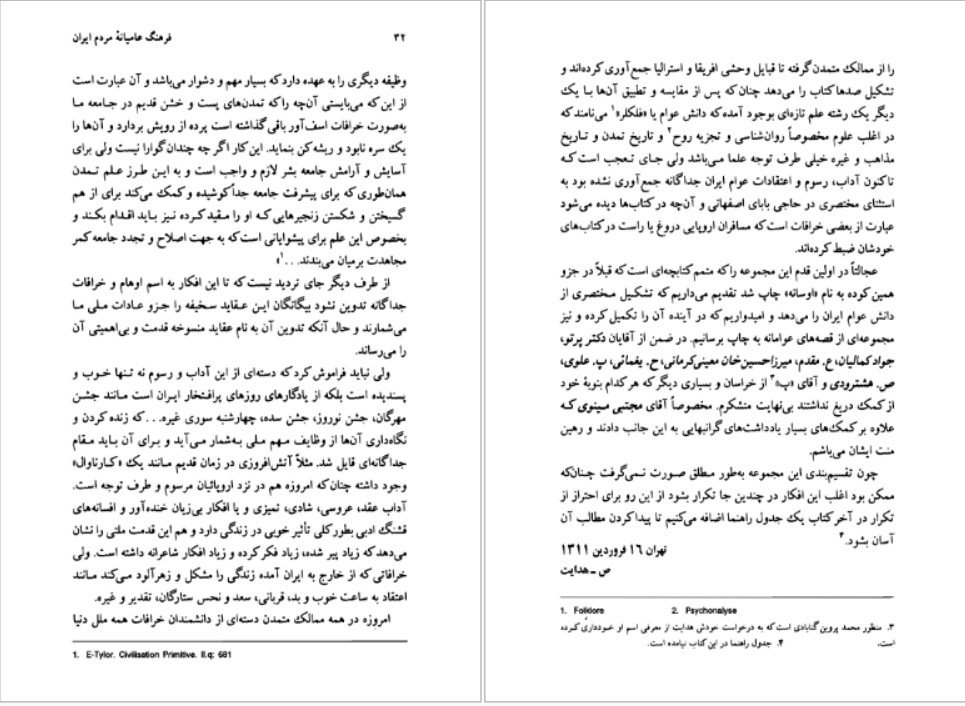 ۳۲
فرهنگ عامیانهٔ مردم ایران
وظیفه دیگری را به عهده دارد که بسیار مهم و دشوار می‌باشد و آن عبارت است
از این که می‌بایستی آن‌چه را که تمدن‌های پست و خشن قدیم در جامعه ما
به‌صورت خرافات اسف‌آور باقی گذاشته است پرده از رویش بردارد و آن‌ها را
یک سره نابود و ریشه‌کن بنماید. این کار اگر چه چندان گوارا نیست ولی برای
آسایش و آرامش جامعه بشر لازم و واجب است و به این طرز علم تمدن
همان‌طوری که برای پیشرفت جامعه جداً کوشیده و کمک می‌کند برای از هم
گسیختن و شکستن زنجیرهایی که او را مقید کرده نیز باید اقدام بکند و
بخصوص این علم برای پیشوایانی است که به جهت اصلاح و تجدد جامعه کمر
مجاهدت برمیان می‌بندند. . .¹»
از طرف دیگر جای تردید نیست که تا این افکار به اسم اوهام و خرافات
جداگانه تدوین نشود بیگانگان این عقاید سخیفه را جزو عادات ملی ما
می‌شمارند و حال آنکه تدوین آن به نام عقاید منسوخه قدمت و بی‌اهمیتی آن
را می‌رساند.
ولی نباید فراموش کرد که دسته‌ای از این آداب و رسوم نه تنها خوب و
پسندیده است بلکه از یادگارهای روزهای پرافتخار ایران است مانند جشن
مهرگان، جشن نوروز، جشن سده، چهارشنبه سوری غیره. . . که زنده کردن و
نگاه‌داری آن‌ها از وظایف مهم ملی به‌شمار می‌آید و برای آن باید مقام
جداگانه‌ای قایل شد. مثلاً آتش‌افروزی در زمان قدیم مانند یک «کارناوال»
وجود داشته چنان‌که امروزه هم در نزد اروپائیان مرسوم و طرف توجه است.
آداب عقد، عروسی، شادی، تمیزی و یا افکار بی‌زیان خنده‌آور و افسانه‌های
قشنگ ادبی بطور کلی تأثیر خوبی در زندگی دارد و هم این قدمت ملتی را نشان
می‌دهد که زیاد پیر شده، زیاد فکر کرده و زیاد افکار شاعرانه داشته است. ولی
خرافاتی که از خارج به ایران آمده زندگی را مشکل و زهرآلود می‌کند مانند
اعتقاد به ساعت خوب و بد، قربانی، سعد و نحس ستارگان، تقدیر و غیره.
امروزه در همه ممالک متمدن دسته‌ای از دانشمندان خرافات همه ملل دنیا
1. E-Tylor. Civilisation Primitive. II.q: 681
را از ممالک متمدن گرفته تا قبایل وحشی افریقا و استرالیا جمع‌آوری کرده‌اند و
تشکیل صدها کتاب را می‌دهد چنان‌که پس از مقایسه و تطبیق آن‌ها با یک
دیگر یک رشته علم تازه‌ای بوجود آمده که دانش عوام یا «فلکلر»¹ می‌نامند که
در اغلب علوم مخصوصاً روان‌شناسی و تجزیه روح² و تاریخ تمدن و تاریخ
مذاهب و غیره خیلی طرف توجه علما می‌باشد ولی جای تعجب است که
تاکنون آداب، رسوم و اعتقادات عوام ایران جداگانه جمع‌آوری نشده بود به
استثنای مختصری در حاجی بابای اصفهانی و آن‌چه در کتاب‌ها دیده می‌شود
عبارت از بعضی خرافات است که مسافران اروپایی دروغ یا راست در کتاب‌های
خودشان ضبط کرده‌اند.
عجالتاً در اولین قدم این مجموعه را که متمم کتابچه‌ای است که قبلاً در جزو
همین کوده به نام «اوسانه» چاپ شد تقدیم می‌داریم که تشکیل مختصری از
دانش عوام ایران را می‌دهد و امیدواریم که در آینده آن را تکمیل کرده و نیز
مجموعه‌ای از قصه‌های عوامانه به چاپ برسانیم. در ضمن از آقایان دکتر پرتو،
جواد کمالیان، ع. مقدم، میرزاحسین‌خان معینی‌کرمانی، ح. یغمائی، پ. علوی،
ص. هشترودی و آقای «پ»³ از خراسان و بسیاری دیگر که هر کدام بنوبهٔ خود
از کمک دریغ نداشتند بی‌نهایت متشکرم. مخصوصاً آقای مجتبی مینوی که
علاوه بر کمک‌های بسیار یادداشت‌های گرانبهایی به این جانب دادند و رهین
منت ایشان می‌باشم.
چون تقسیم‌بندی این مجموعه به‌طور مطلق صورت نمی‌گرفت چنان‌که
ممکن بود اغلب این افکار در چندین جا تکرار بشود از این رو برای احتراز از
تکرار در آخر کتاب یک جدول راهنما اضافه می‌کنیم تا پیدا کردن مطالب آن
آسان بشود.⁴
تهران ۱۶ فروردین ۱۳۱۱
ص ـ هدایت
1. Folklore 2. Psychonalyse
۳. منظور محمد پروین گنابادی است که به درخواست خودش هدایت از معرفی اسم او خودداری کرده
است. ۴. جدول راهنما در این کتاب نیامده است.